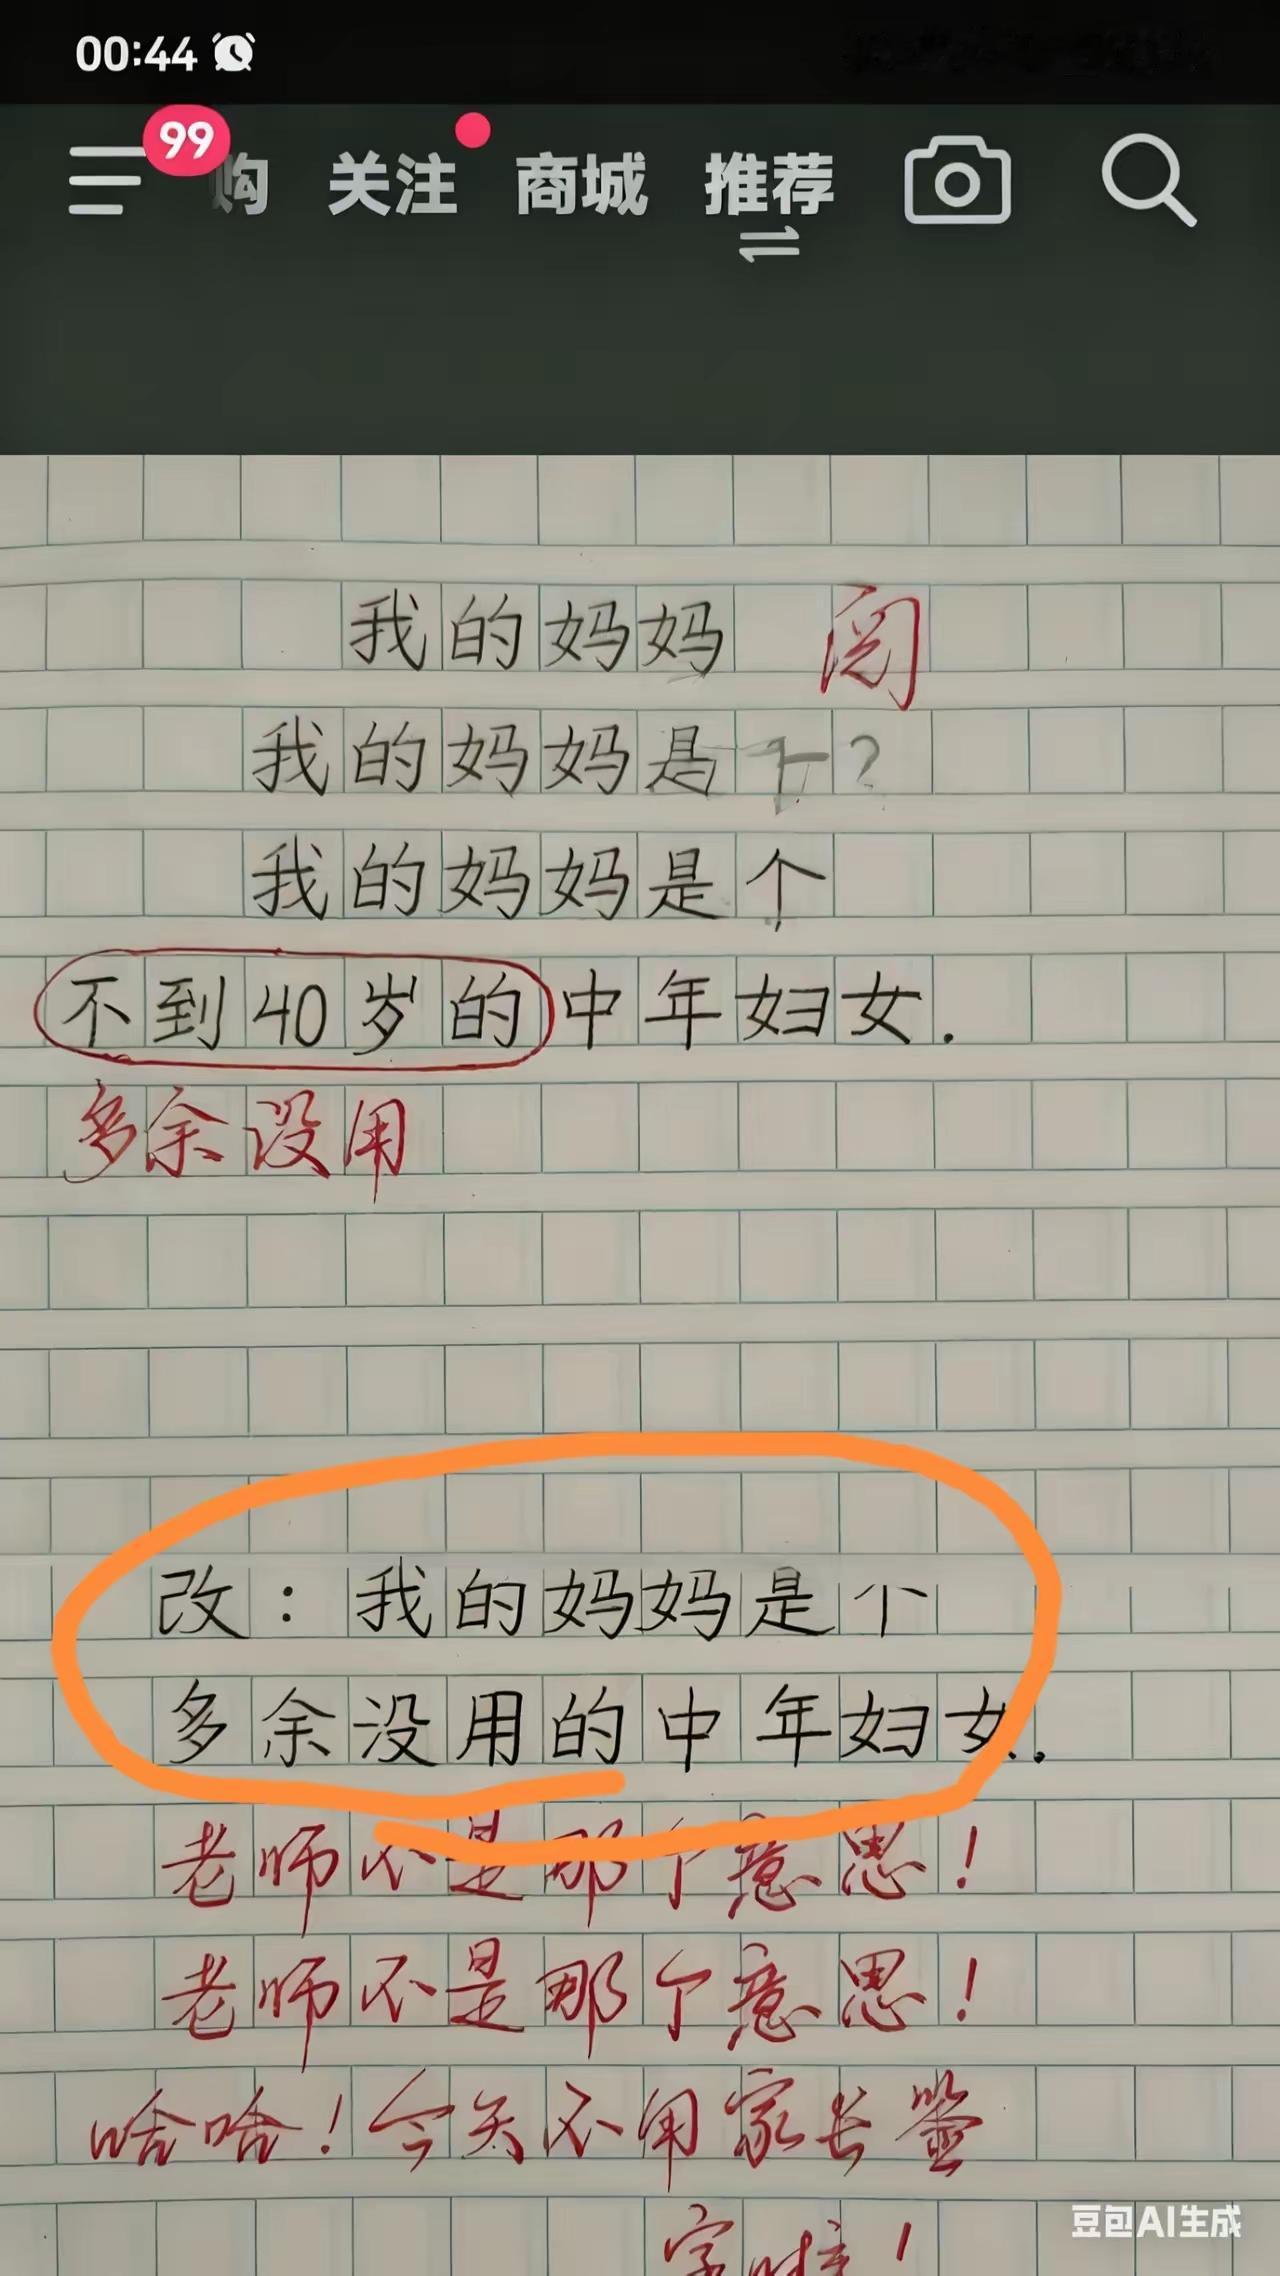 00:44
99
购 关注 商城 推荐
我的妈妈 阅
我的妈妈是个?
我的妈妈是个
不到40岁的中年妇女.
多余没用
改：我的妈妈是个
多余没用的中年妇女.
老师不是那个意思！
老师不是那个意思！
哈哈！今天不用家长签
字啦！
豆包AI生成